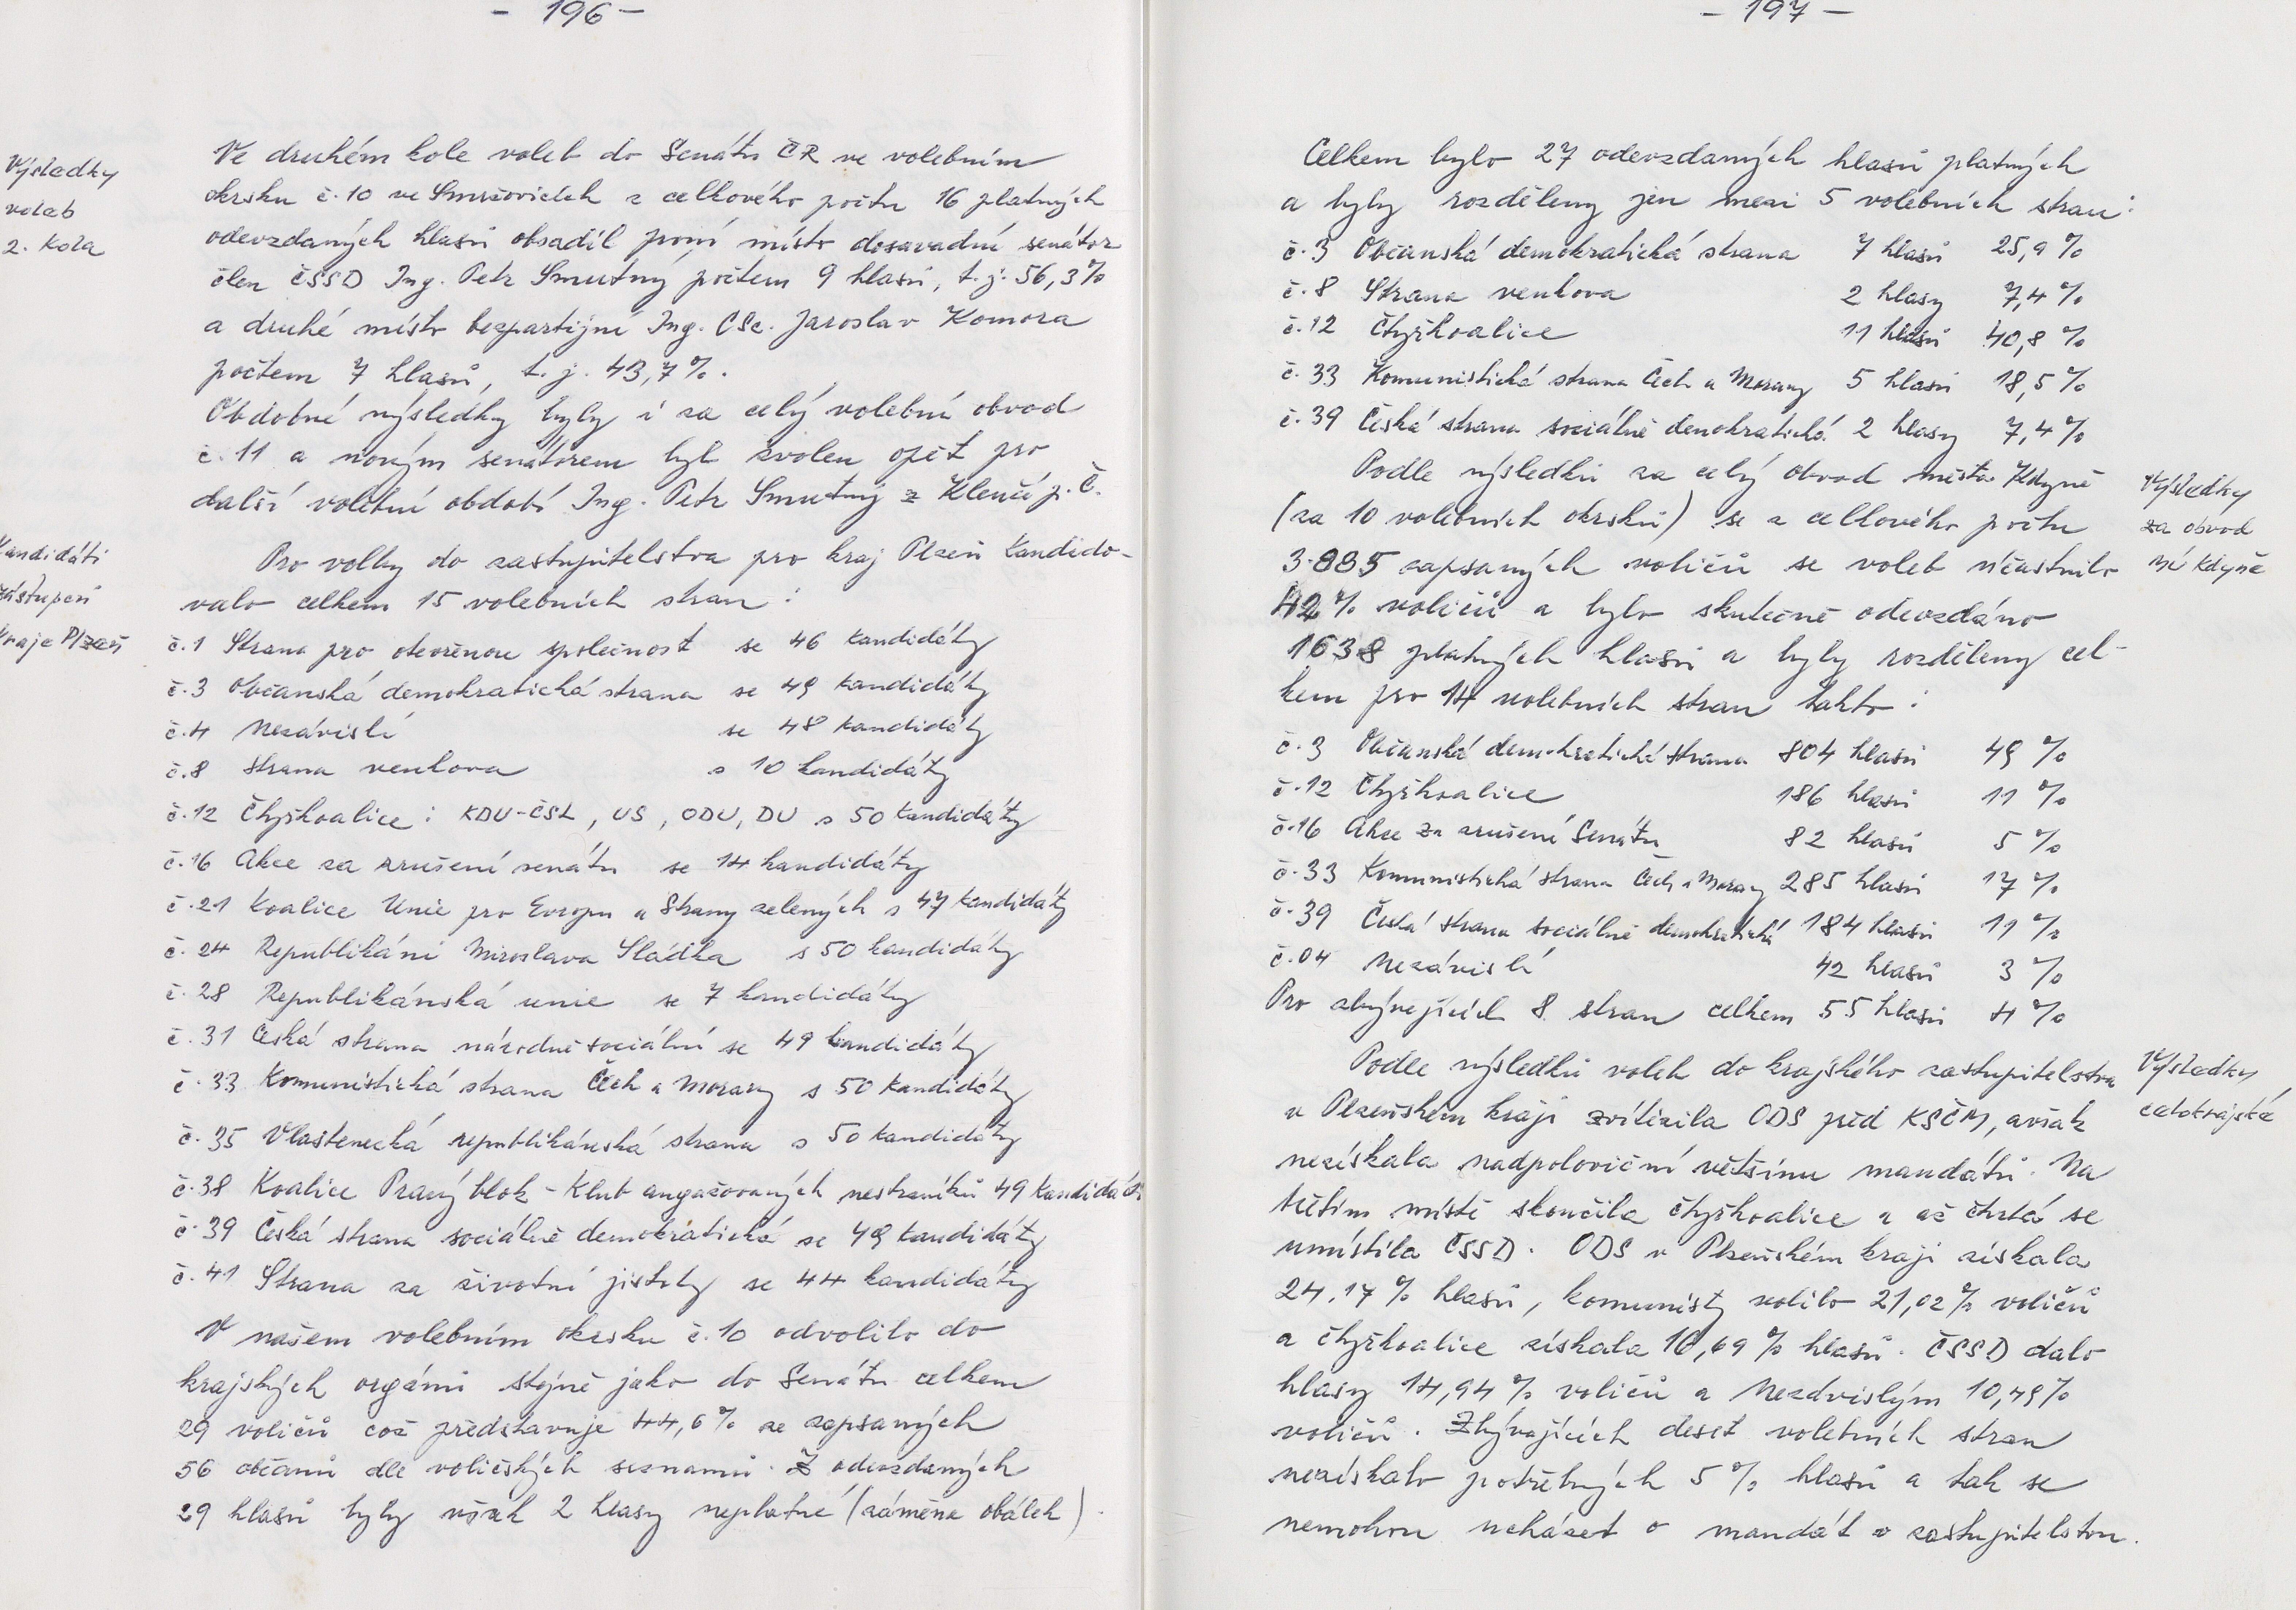 - 196 -
Výsledky
voleb
2. kola
Ve druhém kole voleb do Senátu ČR ve volebním
okrsku č. 10 ve Smržovicích z celkového počtu 16 platných
odevzdaných hlasů obsadil první místo dosavadní senátor
člen ČSSD Ing. Petr Smutný počtem 9 hlasů, t. j. 56,3%
a druhé místo bezpartijní Ing. CSc. Jaroslav Komora
počtem 7 hlasů, t. j. 43,7%.
Obdobné výsledky byly i za celý volební obvod
č. 11 a novým senátorem byl zvolen opět pro
další volební období Ing. Petr Smutný z Klenčí p. Č.
Kandidáti
zástupců
kraje Plzeň
Pro volby do zastupitelstva pro kraj Plzeň kandido-
valo celkem 15 volebních stran:
č. 1 Strana pro otevřenou společnost se 46 kandidáty
č. 3 Občanská demokratická strana se 49 kandidáty
č. 4 Nezávislí se 48 kandidáty
č. 8 Strana venkova s 10 kandidáty
č. 12 Čtyřkoalice: KDU-ČSL, US, ODU, DU s 50 kandidáty
č. 16 Akce za zrušení senátu se 14 kandidáty
č. 21 Koalice Unie pro Evropu a Strany zelených s 47 kandidáty
č. 24 Republikáni Miroslava Sládka s 50 kandidáty
č. 28 Republikánská unie se 7 kandidáty
č. 31 Česká strana národně sociální se 49 kandidáty
č. 33 Komunistická strana Čech a Moravy s 50 kandidáty
č. 35 Vlastenecká republikánská strana s 50 kandidáty
č. 38 Koalice Pravý blok - Klub angažovaných nestraníků 49 kandidáti
č. 39 Česká strana sociálně demokratická se 49 kandidáty
č. 41 Strana za životní jistoty se 44 kandidáty
V našem volebním okrsku č. 10 odvolilo do
krajských orgánů stejně jako do Senátu celkem
29 voličů což představuje 44,6% ze zapsaných
56 občanů dle voličských seznamů. Z odevzdaných
29 hlasů byly však 2 hlasy neplatné (záměna obálek).
- 197 -
Celkem bylo 27 odevzdaných hlasů platných
a byly rozděleny jen mezi 5 volebních stran:
č. 3 Občanská demokratická strana 7 hlasů 25,9 %
č. 8 Strana venkova 2 hlasy 7,4 %
č. 12 Čtyřkoalice 11 hlasů 40,8 %
č. 33 Komunistická strana Čech a Moravy 5 hlasů 18,5 %
č. 39 Česká strana sociálně demokratická 2 hlasy 7,4 %
Podle výsledků za celý obvod města Kdyně
(za 10 volebních okrsků) se z celkového počtu
3.885 zapsaných voličů se voleb účastnilo
42% voličů a bylo skutečně odevzdáno
1638 platných hlasů a byly rozděleny cel-
kem pro 14 volebních stran takto:
Výsledky
za obvod
MÚ Kdyně
č. 3 Občanská demokratická strana 804 hlasů 49 %
č. 12 Čtyřkoalice 186 hlasů 11 %
č. 16 Akce za zrušení Senátu 82 hlasů 5 %
č. 33 Komunistická strana Čech a Moravy 285 hlasů 17 %
č. 39 Česká strana sociálně demokratická 184 hlasů 11 %
č. 04 Nezávislí 42 hlasů 3 %
Pro zbývajících 8 stran celkem 55 hlasů 4 %
Výsledky
celokrajské
Podle výsledků voleb do krajského zastupitelstva
v Plzeňském kraji zvítězila ODS před KSČM, avšak
nezískala nadpoloviční většinu mandátů. Na
třetím místě skončila čtyřkoalice a až čtvrtá se
umístila ČSSD. ODS v Plzeňském kraji získala
24,17 % hlasů, komunisty volilo 21,02% voličů
a čtyřkoalice získala 16,69 % hlasů. ČSSD dalo
hlasy 14,94 % voličů a Nezávislým 10,49%
voličů. Zbývajících deset volebních stran
nezískalo potřebných 5 % hlasů a tak se
nemohou ucházet o mandát v zastupitelstvu.